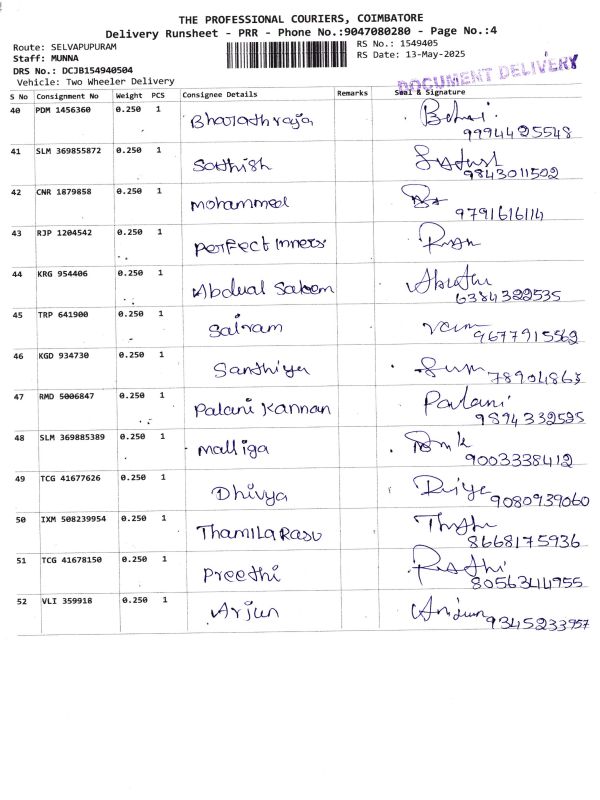 THE PROFESSIONAL COURIERS, COIMBATORE
Delivery Runsheet - PRR - Phone No.:9047080280 - Page No.:4
Route: SELVAPUPURAM RS No.: 1549405
Staff: MUNNA RS Date: 13-May-2025
DRS No.: DCJB154940504
Vehicle: Two Wheeler Delivery
DOCUMENT DELIVERY
S No Consignment No Weight PCS Consignee Details Remarks Seal & Signature
40 PDM 1456360 0.250 1 Bharathraja
9994425548
41 SLM 369855872 0.250 1 Sathish
9843011502
42 CNR 1879858 0.250 1 mohammed
9791616114
43 RJP 1204542 0.250 1 perfect Inners
44 KRG 954406 0.250 1 Abdual Saleem
6384322535
45 TRP 641900 0.250 1 Sairam
9677915562
46 KGD 934730 0.250 1 Santhiya
47 RMD 5006847 0.250 1 Palani Kannan Palani
9894332525
48 SLM 369885389 0.250 1 malliga
9003338412
49 TCG 41677626 0.250 1 Dhivya
9080939060
50 IXM 508239954 0.250 1 Thamilarasu
8668175936
51 TCG 41678150 0.250 1 Preethi
8056344955
52 VLI 359918 0.250 1 Arjun
9345233957